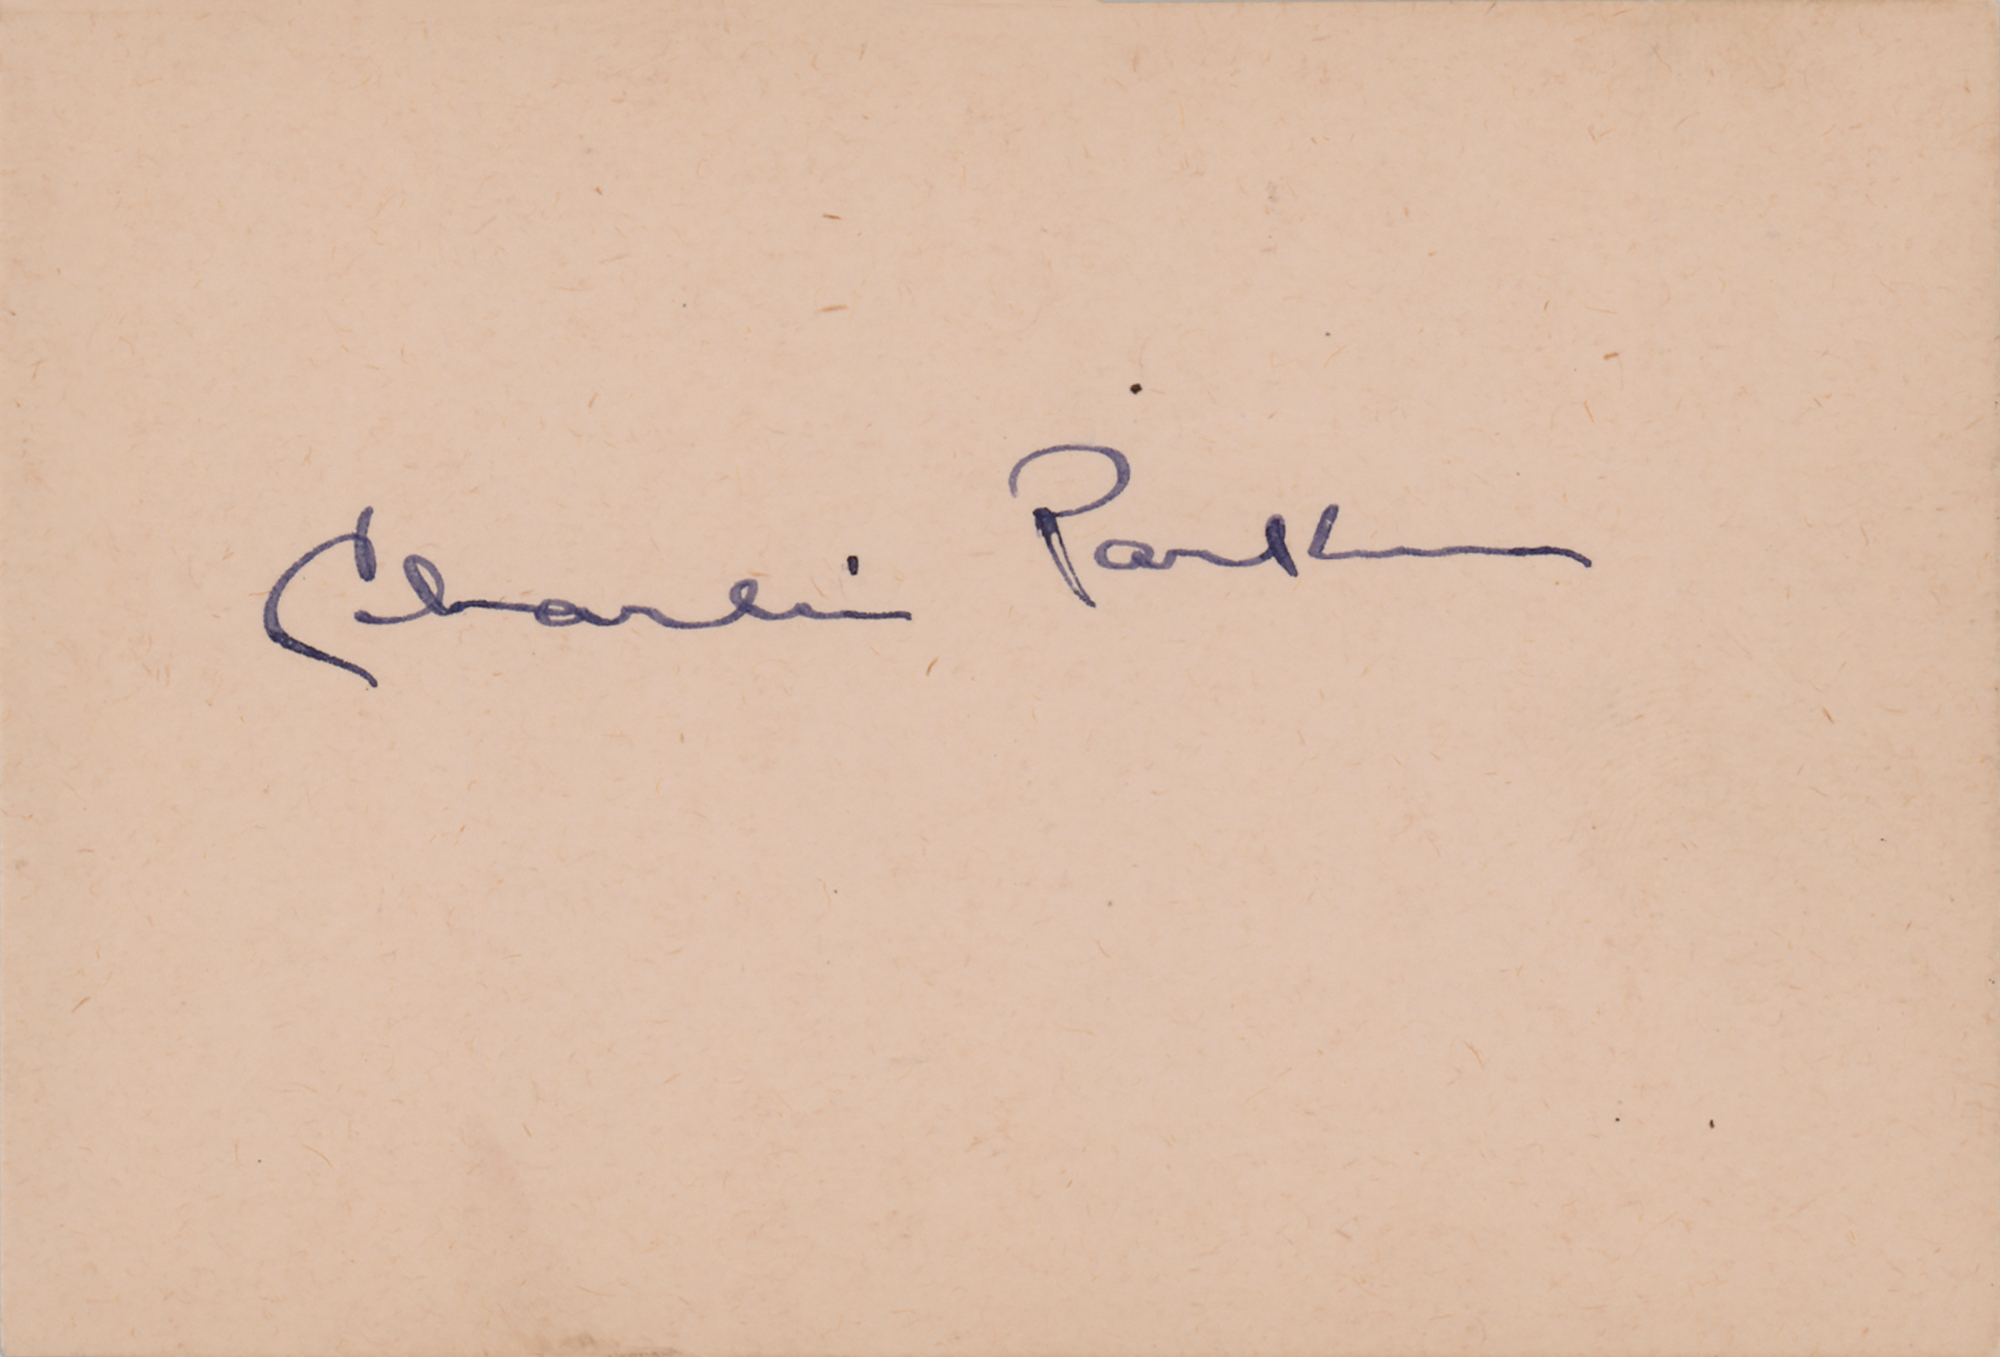 Charlie Parker